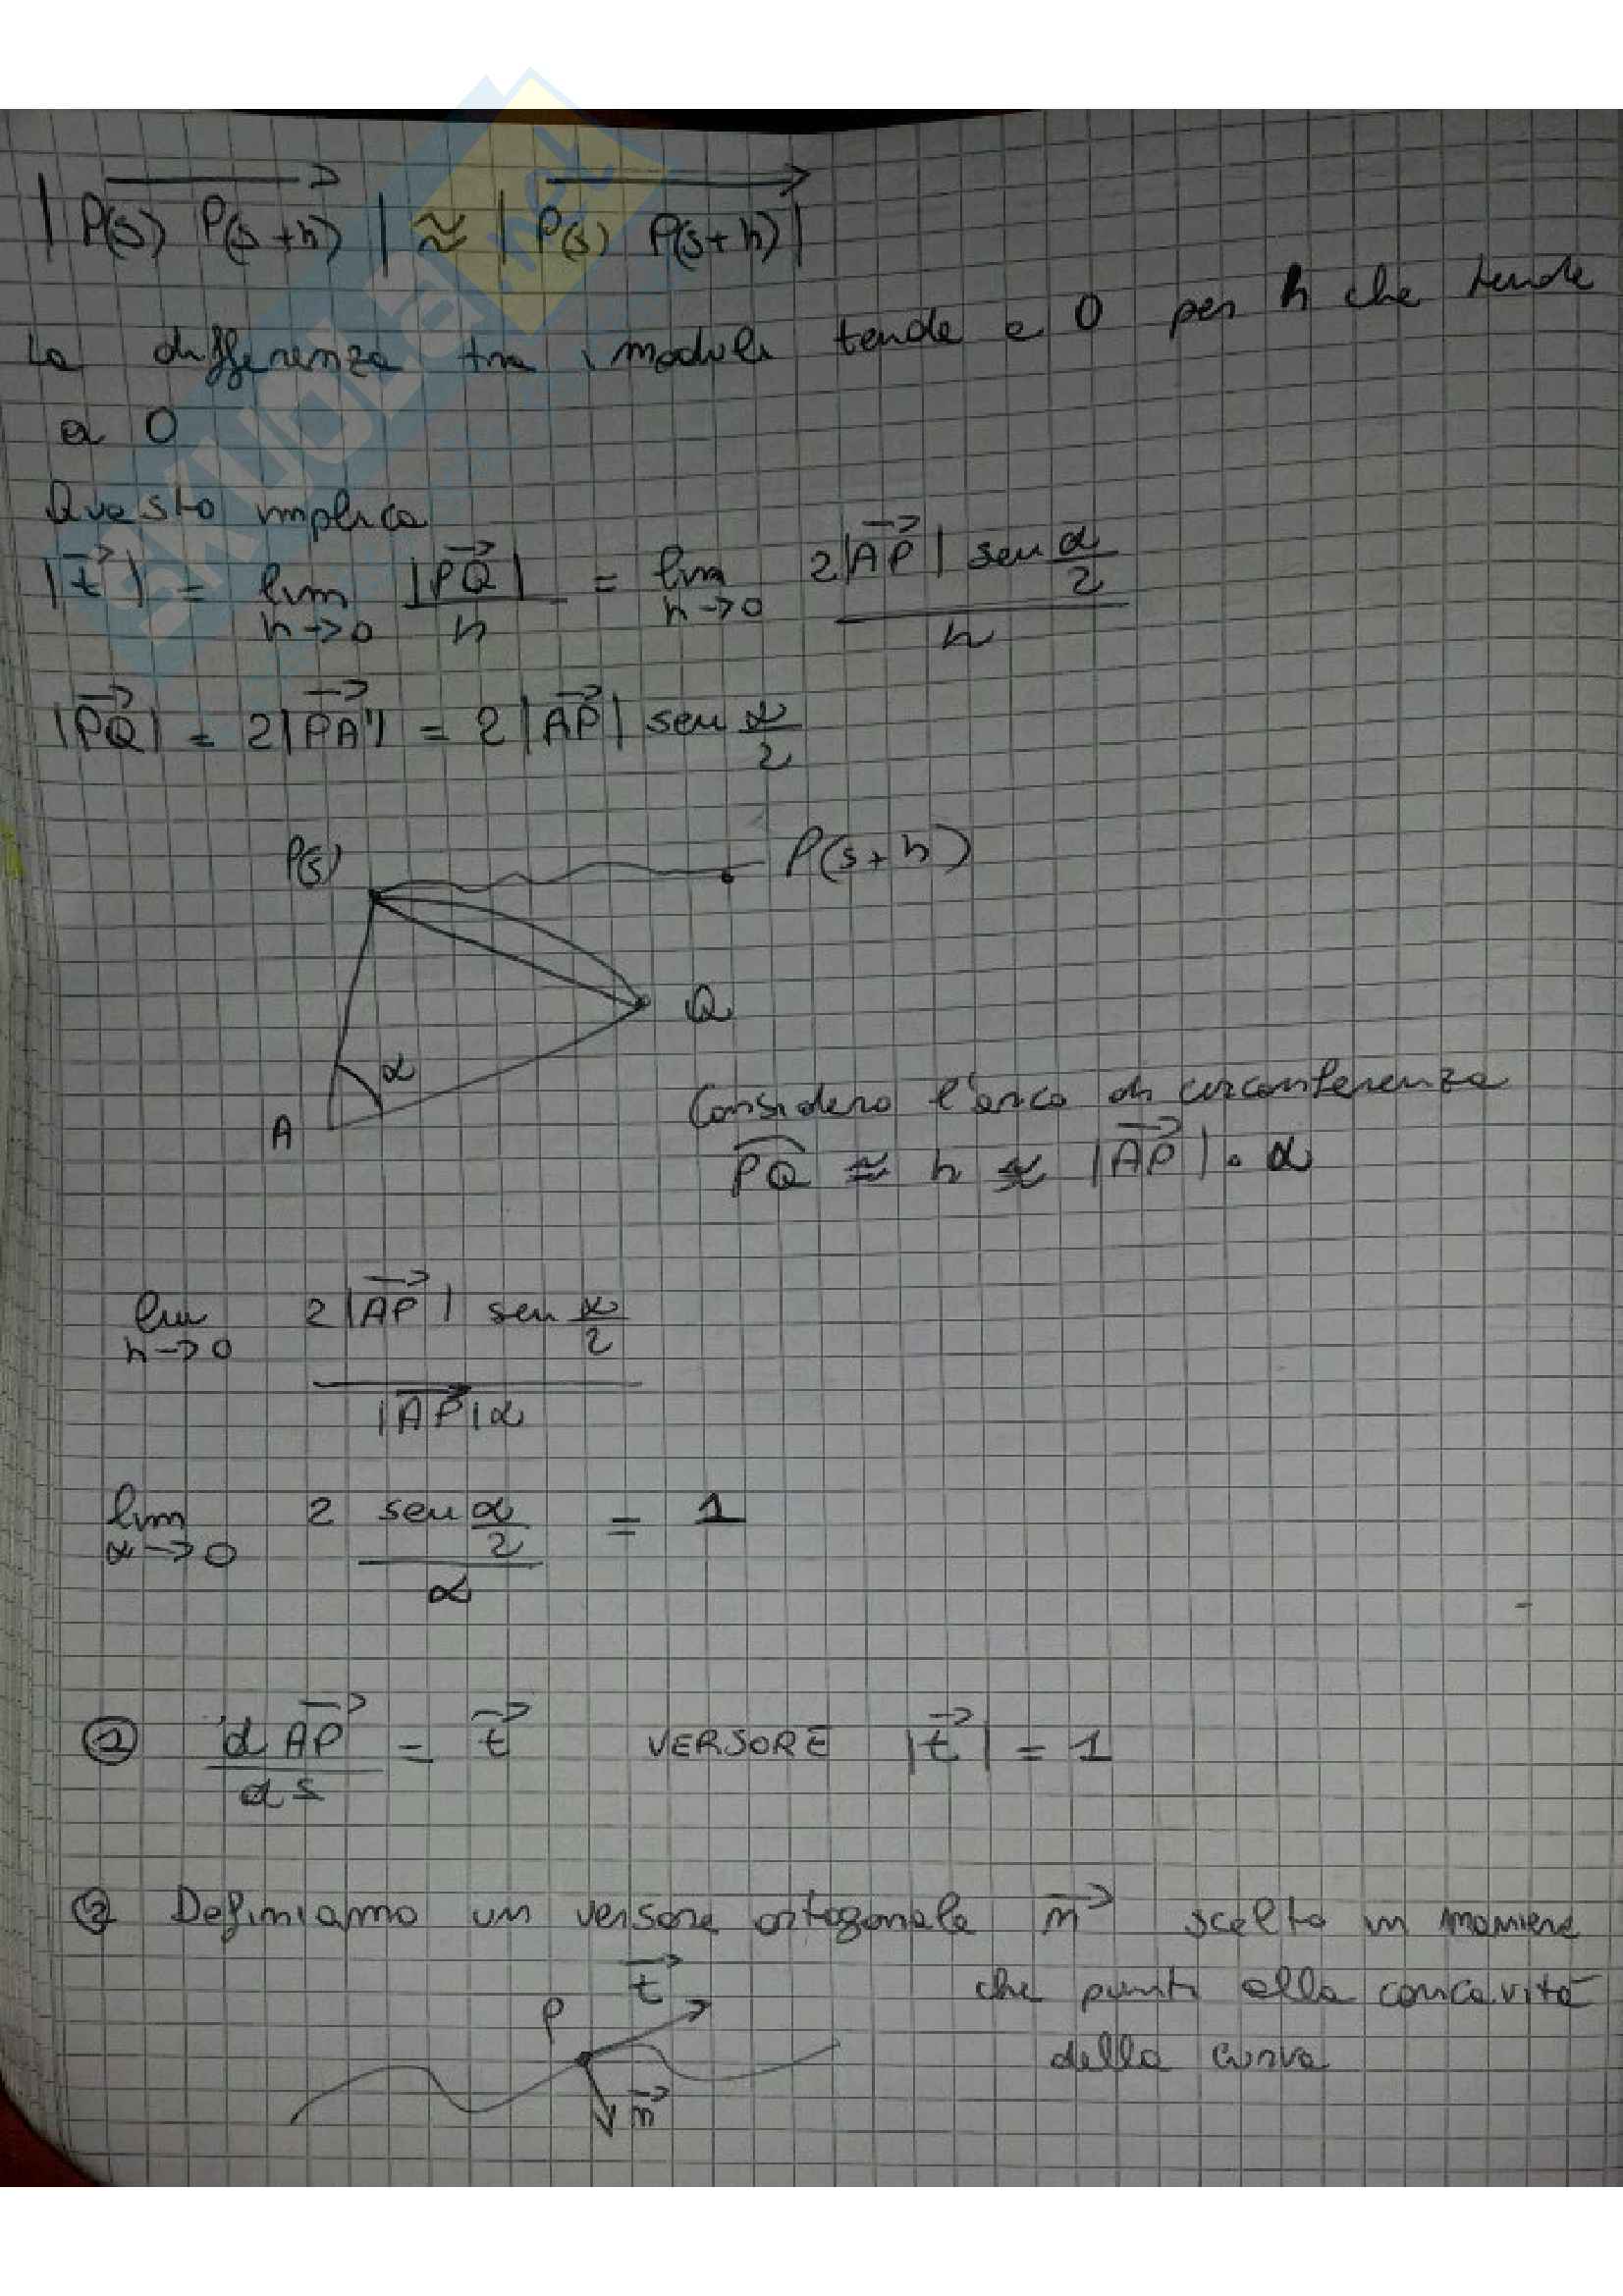 |P(s) P(s+h)| ≈ |P(s) P(s+h)|
la differenza tra i moduli tende a 0 per h che tende
a 0
Questo implica
|t⃗| = lim h→0 |PQ⃗|/h = lim h→0 2|AP⃗| sen α/2 / h
|PQ⃗| = 2|PA'⃗| = 2|AP⃗| sen α/2
P(s) P(s+h)
Q
α
A
Considero l'arco di circonferenza
PQ ≈ h ≈ |AP⃗| · α
lim h→0 2|AP⃗| sen α/2 / |AP⃗|α
lim α→0 2 sen α/2 / α = 1
① dAP⃗/ds = t⃗ VERSORE |t⃗| = 1
② Definiamo un versore ortogonale n⃗ scelto in maniera
che punti alla concavità
della curva
P t⃗
n⃗
SKUOLA.net